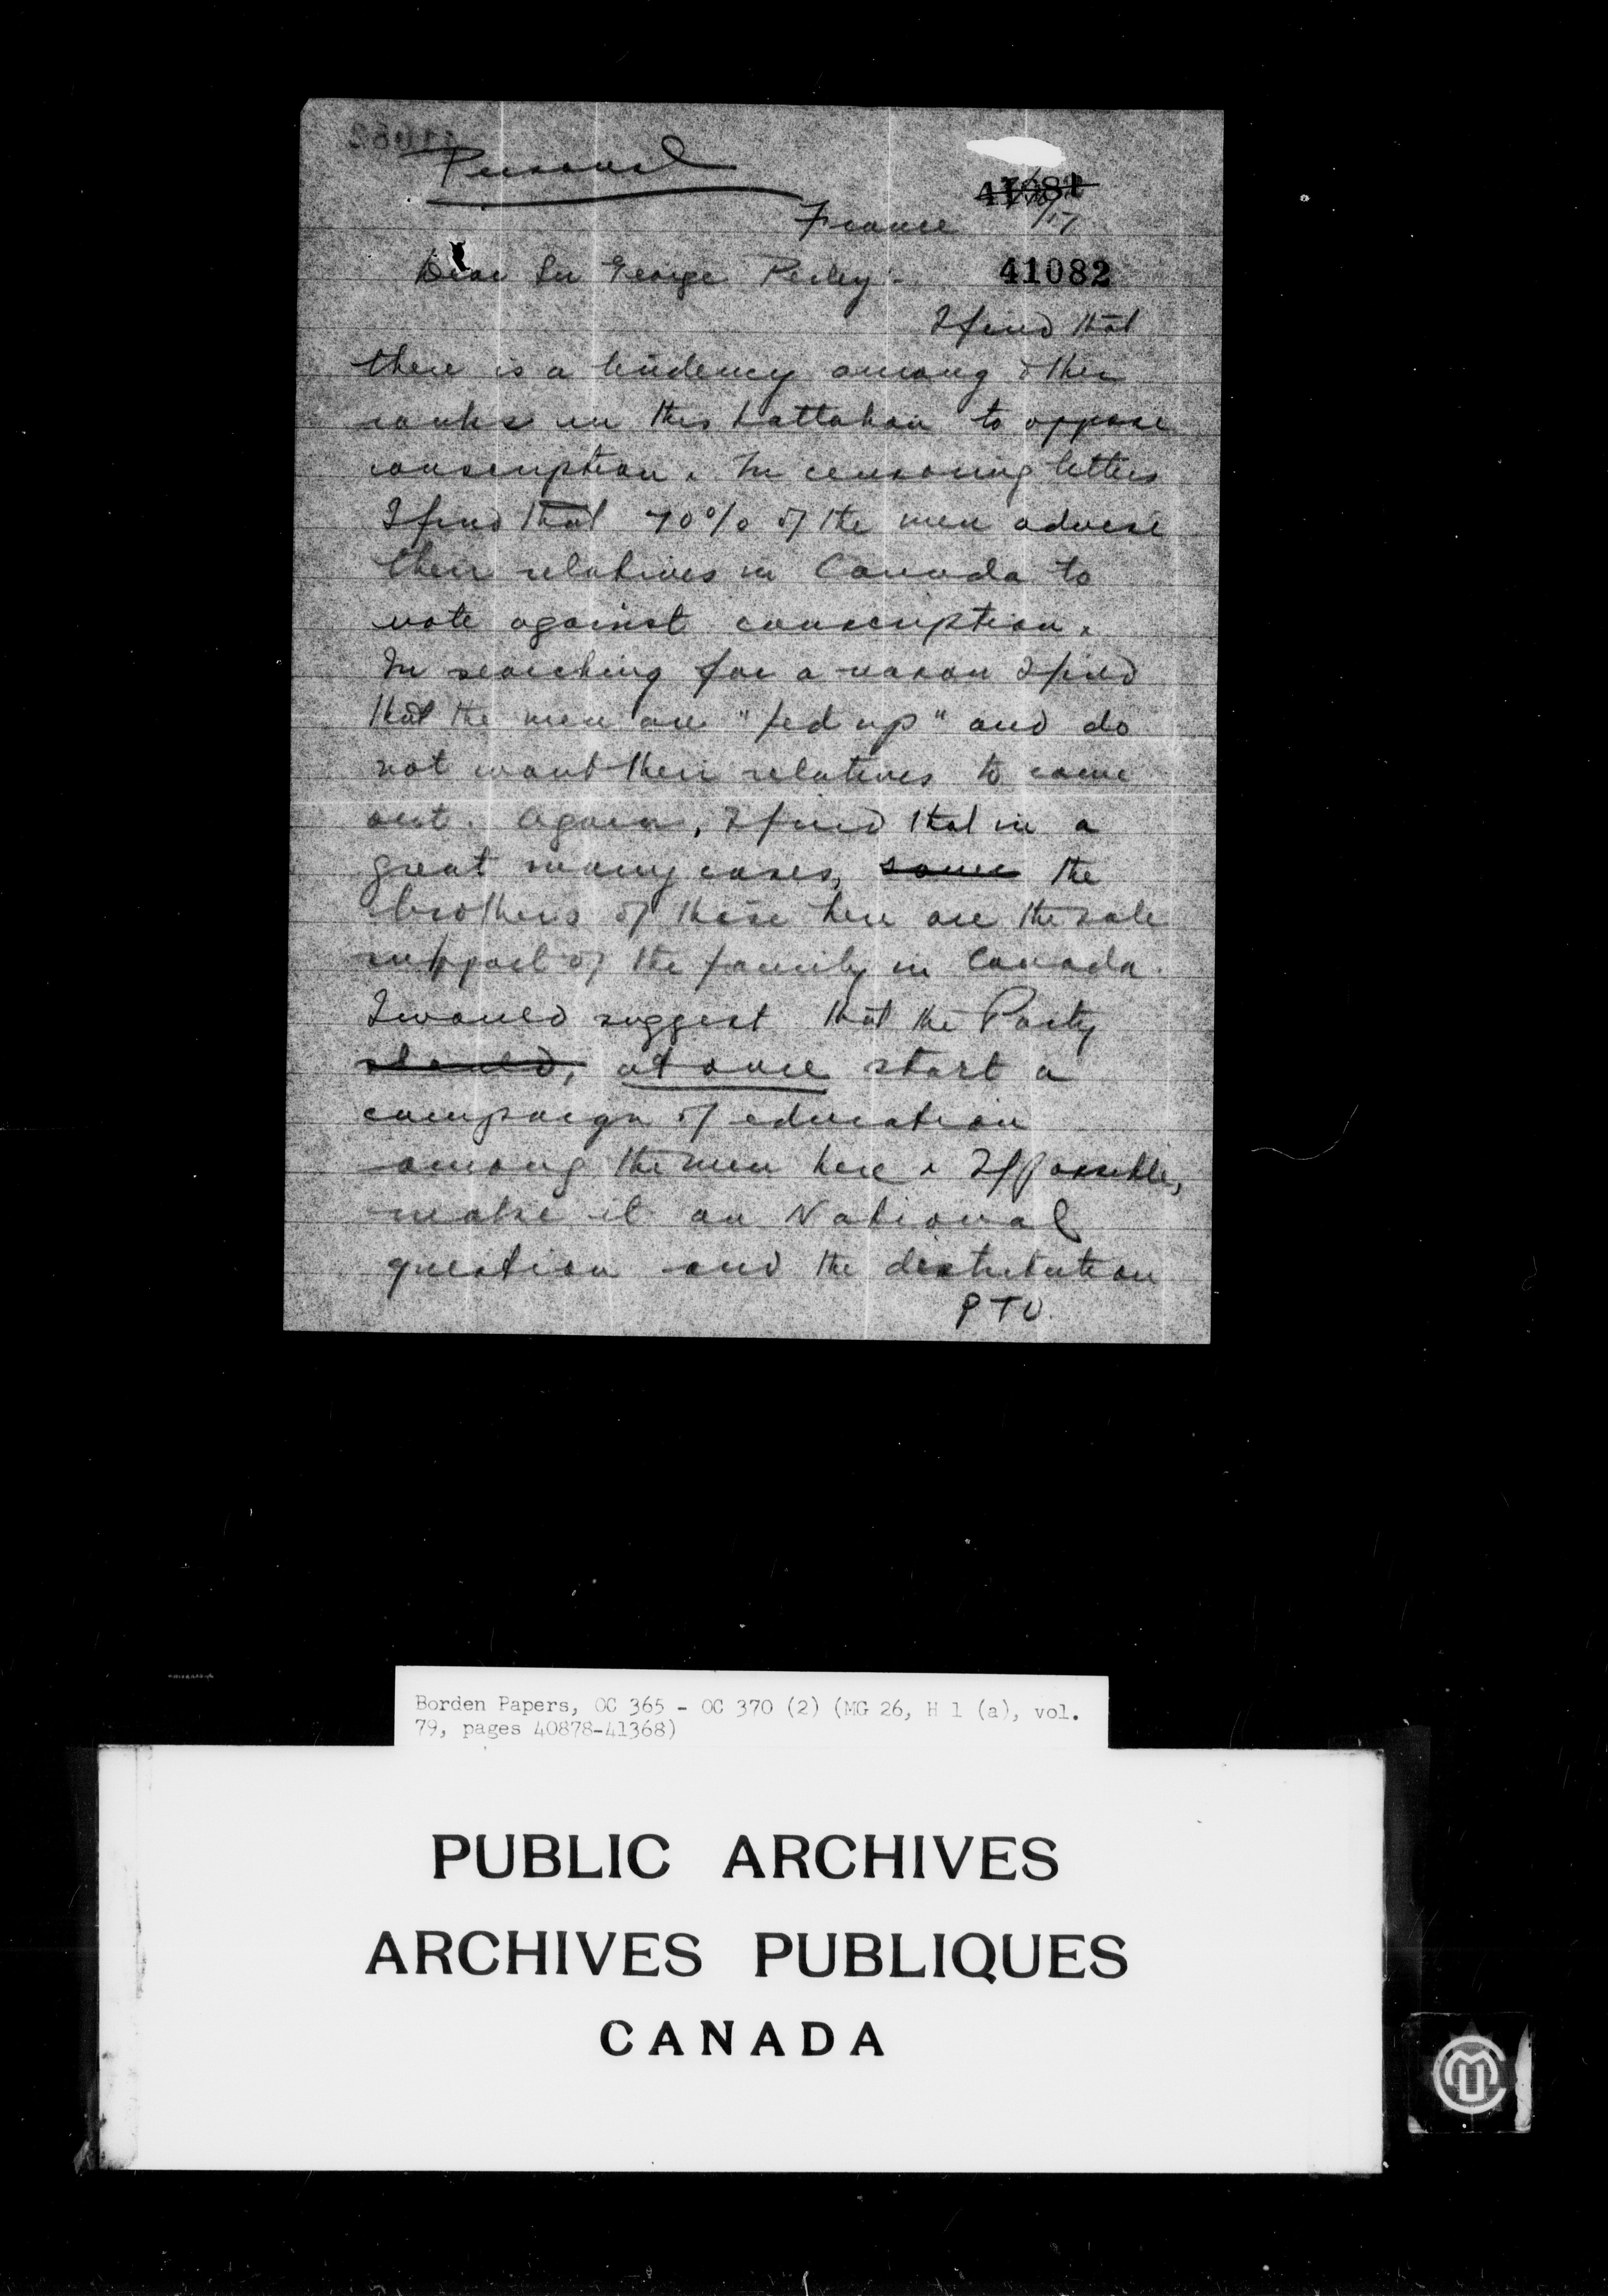 Personal
41081
France /17
Dear Sir George Perley:
41082
I find that
there is a tendency among other
ranks in this battalion to oppose
conscription. In censoring letters
I find that 70% of the men advise
their relatives in Canada to
vote against conscription.
In searching for a reason I find
that the men are "fed up" and do
not want their relatives to come
out. Again, I find that in a
great many cases, some the
brothers of those here are the sole
support of the family in Canada.
I would suggest that the Party
should, at once start a
campaign of education
among the men here & If possible,
make it an National
question and the distribution
PTO.
Borden Papers, OC 365 - OC 370 (2) (MG 26, H 1 (a), vol.
79, pages 40878-41368)
PUBLIC ARCHIVES
ARCHIVES PUBLIQUES
CANADA